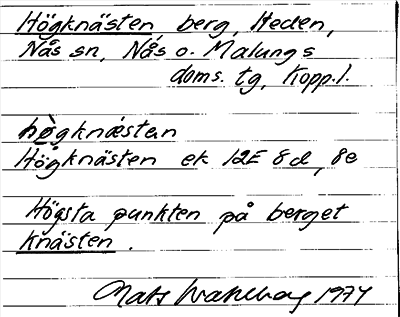 Högknästen, berg, Heden,
Nås sn, Nås o. Malungs
doms. tg, Kopp. l.
hø̀gknǽstan
Högknästen ek 12E 8d, 8e
Högsta punkten på berget
Knästen.
Mats Wahlberg 1974